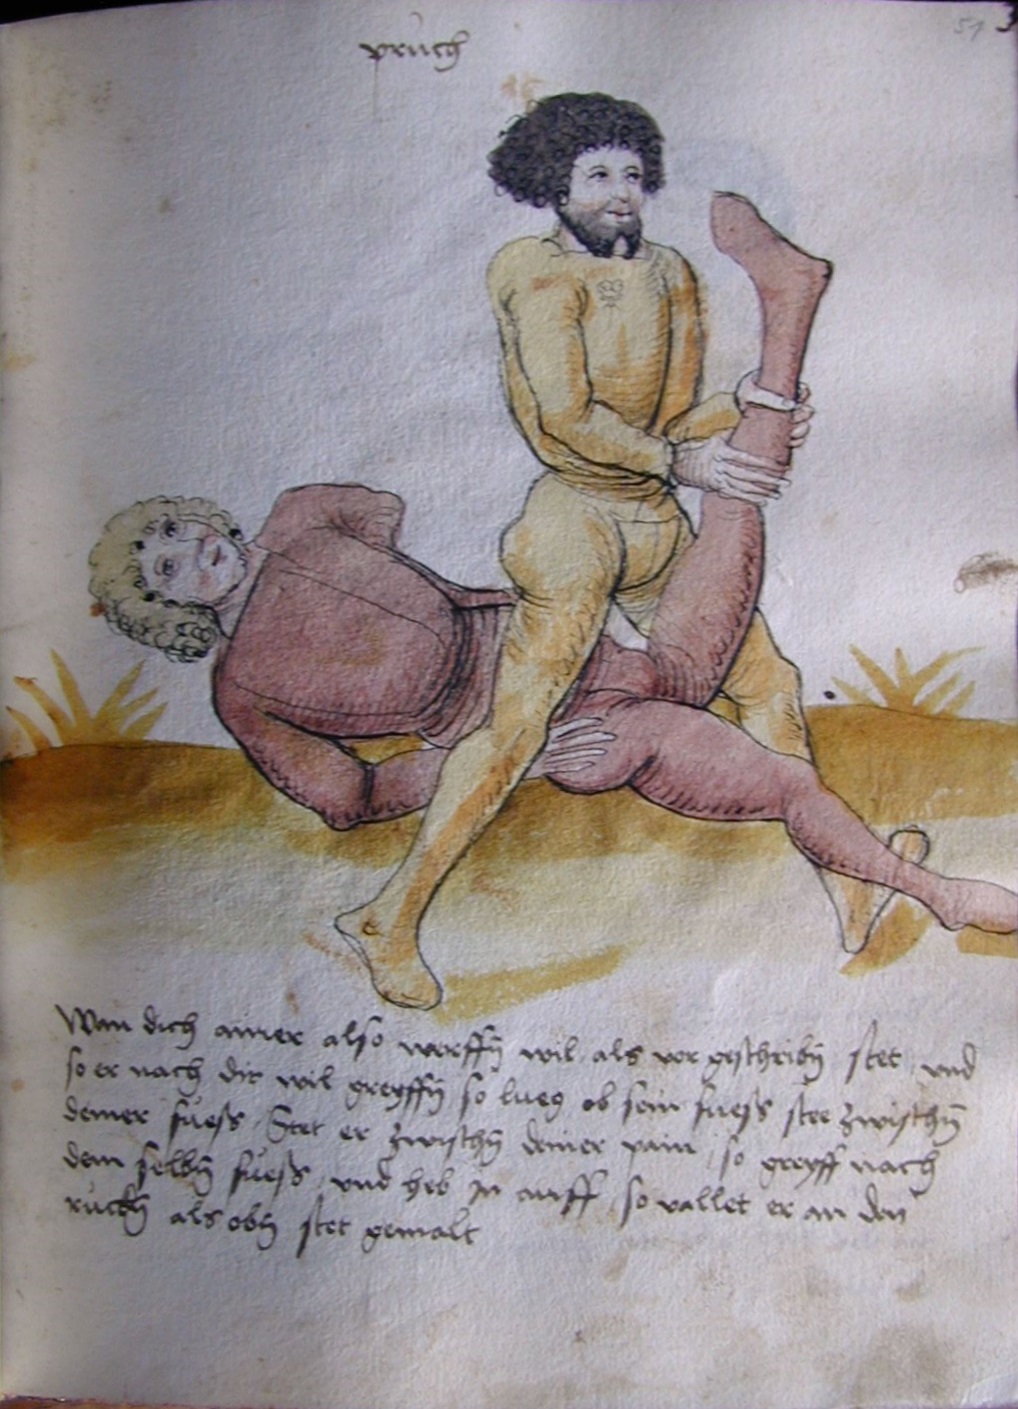 pruch
51
Wan dich ainer also werffn̄ wil als vor geschribn̄ stet und
so er nach dir wil greyffn̄ so lueg ob sein fuess stee zwischn̄
deiner füess Stet er zwischn̄ deiner pain so greyff nach
dem selbn̄ füess und heb in auff so vallet er an den
ruckn̄ als obn̄ stet gemalt